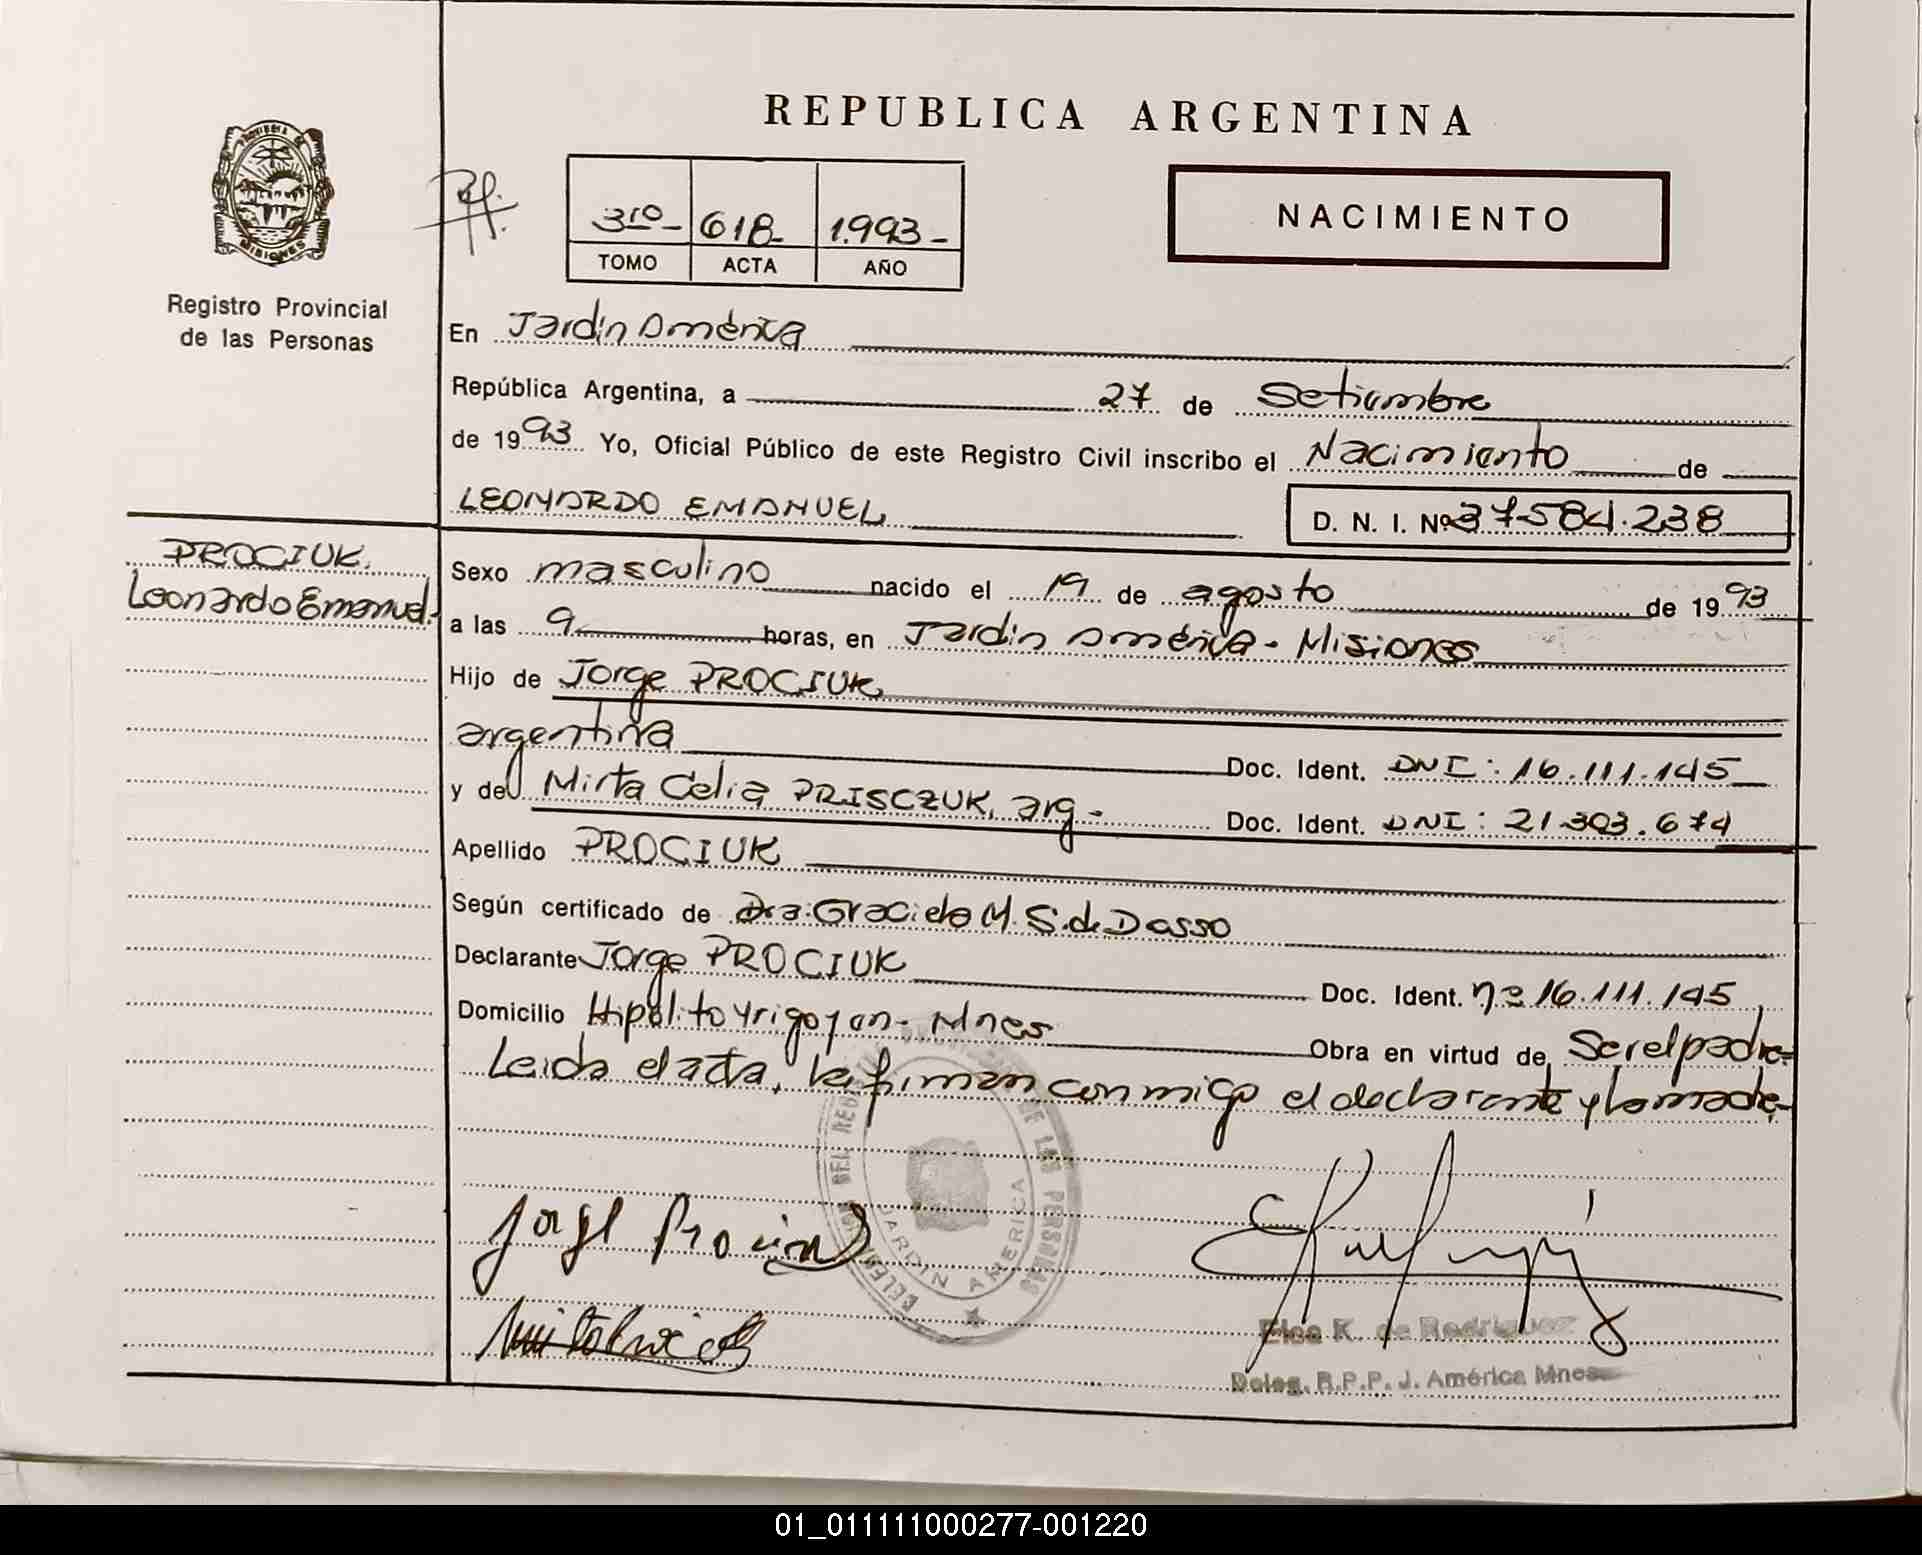 REPUBLICA ARGENTINA
MISIONES
Registro Provincial
de las Personas
3ro- 618- 1.993-
TOMO ACTA AÑO
NACIMIENTO
En Jardín América
República Argentina, a 27 de Setiembre
de 1993 Yo, Oficial Público de este Registro Civil inscribo el Nacimiento de
LEONARDO EMANUEL D. N. I. Nº 37.584.238
PROCIUK.
Leonardo Emanuel.
Sexo masculino nacido el 19 de agosto de 1993
a las 9 horas, en Jardín América - Misiones
Hijo de Jorge PROCIUK
argentina Doc. Ident. DNI: 16.111.145
y de Mirta Celia PRISCZUK, arg.- Doc. Ident. DNI: 21.303.674
Apellido PROCIUK
Según certificado de Dra. Graciela M. S. de Dasso
Declarante Jorge PROCIUK Doc. Ident. nº 16.111.145
Domicilio Hipólito Yrigoyen - Mnes Obra en virtud de Ser el padre-
Leida el acta, la firman conmigo el declarante y la madre-
DE LAS PERSONAS
JARDIN AMERICA
Jorge Prociuk
Elsa K. de Rodriguez
Deleg. R.P.P. J. América Mnes
01_011111000277-001220